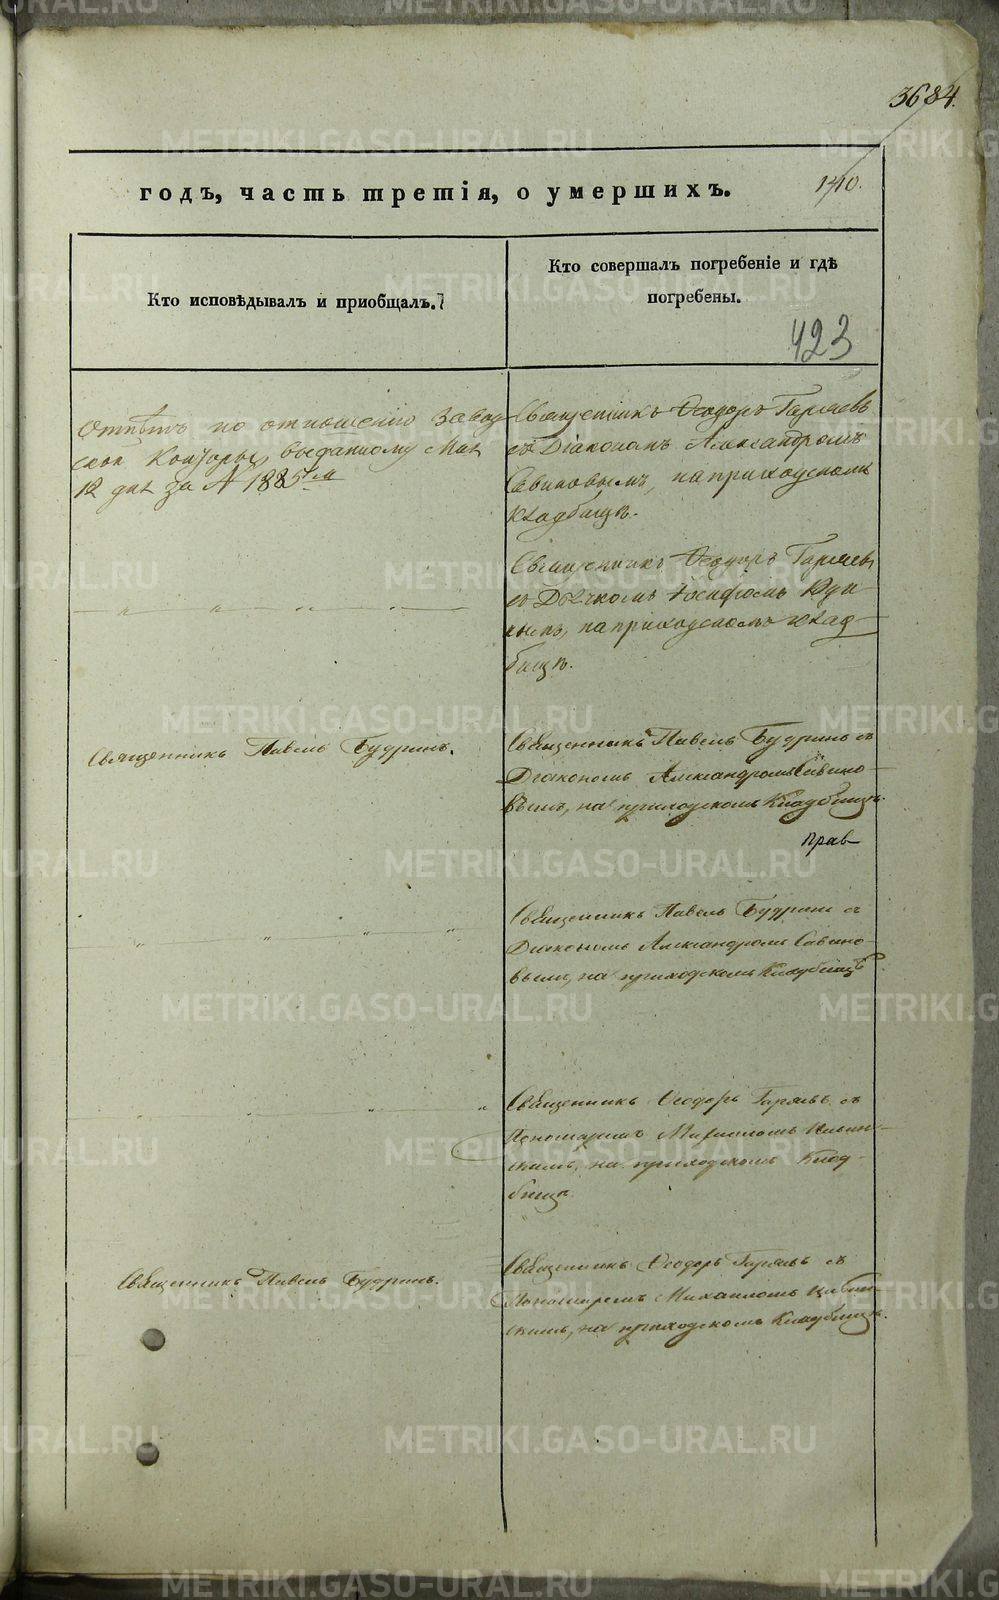 3684.
годъ, часть третія, о умершихъ.
1410.
Кто исповѣдывалъ и приобщалъ.
Кто совершалъ погребеніе и гдѣ
погребены.
423
Отпѣтъ по отношенію Завод
ской Конторы, выданному Мая
12 дня за № 1885м
Священникъ Ѳеодоръ Гаряевъ
съ Діакономъ Александромъ
Савиновымъ, на приходскомъ
кладбищѣ.
Священникъ Ѳеодоръ Гаряевъ
съ Дьячкомъ Іосифомъ
на приходскомъ клад
бищѣ.
Священникъ Павелъ Будринъ.
Священникъ Павелъ Будринъ съ
Діакономъ Александромъ Савино
вымъ, на приходскомъ Кладбищѣ.
Прав
Священникъ Павелъ Будринъ съ
Діакономъ Александромъ Савино
вымъ, на приходскомъ Кладбищѣ.
Священникъ Ѳеодоръ Гаряевъ съ
Пономаремъ Михаиломъ
на приходскомъ Клад-
бищѣ.
Священникъ Павелъ Будринъ.
Священникъ Ѳеодоръ Гаряевъ съ
Пономаремъ Михаиломъ
на приходскомъ Кладбищѣ.
METRIKI.GASO-URAL.RU